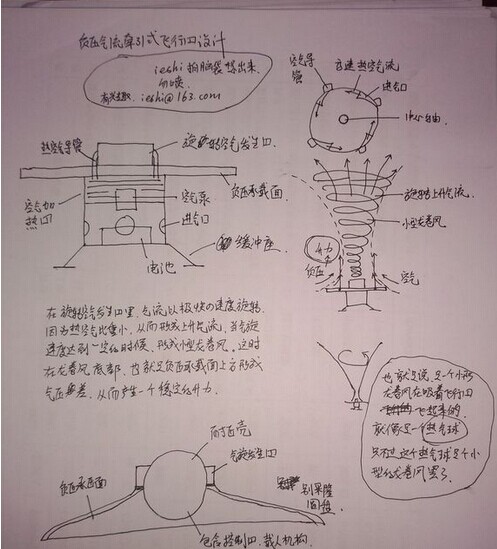 负压气流牵引式飞行口设计
ieshi 拍脑袋想出来
勿喷
有兴趣. ieshi@163.com
空气导管
高速热空气流
进气口
热空气导管
旋转空气发生口
负压承载面
空气加热口
空气泵
进气口
缓冲座
电池
旋转上升气流
小型龙卷风
升力
负压
空气
在旋转空气发生口里,气流以极快的速度旋转.
因为热空气比重小.从而形成上升气流.当气旋
速度达到一定的时候.形成小型龙卷风.这时
在龙卷风底部.也就是负压承截面上方形成
气压差.从而产生一个稳定的升力.
也就是说,是一个小形
龙卷风在吸着飞行口
飞起来的.
就像是一个热气球
只不过这个热气球是个小
型的龙卷风罢了.
气旋发生口
负压承面
包含控制口.载人机构.